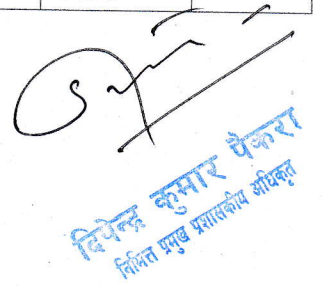 दिपेन्द्र कुमार पैकरा
निमित्त प्रमुख प्रशासकीय अधिकृत